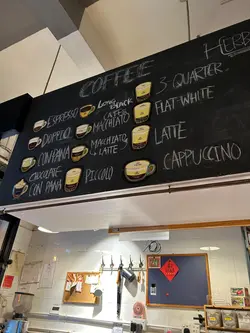 COFFEE
HERB
ESPRESSO
DOPPIO
CON PANA
CHOCOLATE
CON PANA
LONG BLACK
CAFFE
MACCHIATO
MACCHIATO
LATTE
PICCOLO
3 QUARTER
FLAT WHITE
LATTE
CAPPUCCINO